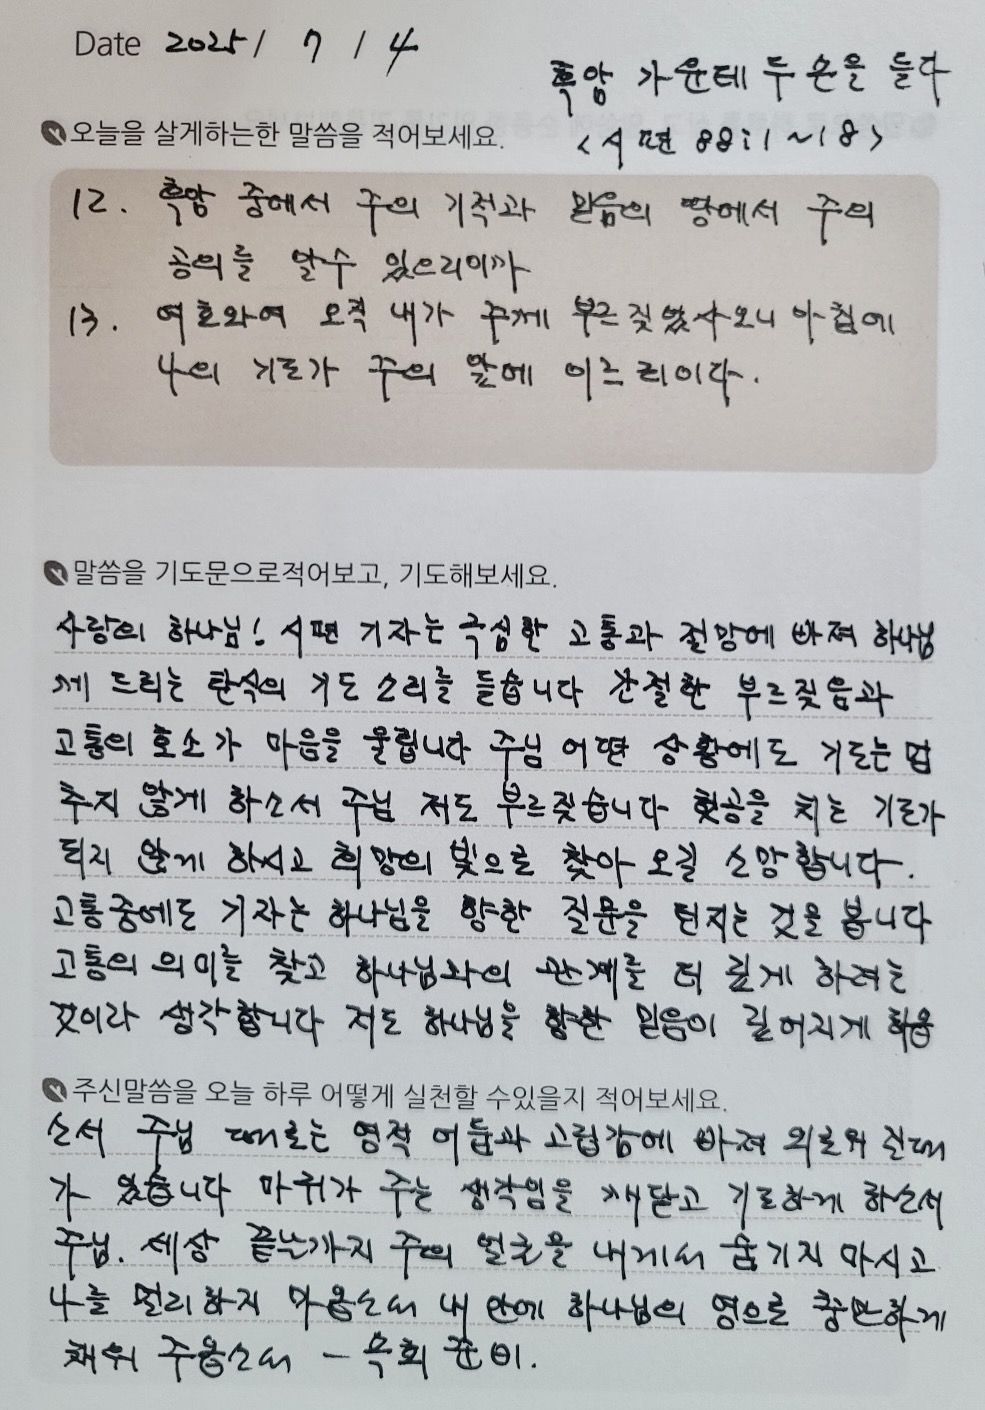 Date 2025 / 7 / 4
흑암 가운데 두 손을 들다
오늘을 살게하는한 말씀을 적어보세요.
<시편 88:1~18>
12. 흑암 중에서 주의 기적과 믿음의 땅에서 주의
공의를 알수 있으리이까
13. 여호와여 오직 내가 주께 부르짖었사오니 아침에
나의 기도가 주의 앞에 이르리이다.
말씀을 기도문으로적어보고, 기도해보세요.
사랑의 하나님! 시편 기자는 극심한 고통과 절망에 빠져 하나님
께 드리는 탄식의 기도 소리를 듣습니다 간절한 부르짖음과
고통의 호소가 마음을 울립니다 주님 어떤 상황에도 기도는 멈
추지 않게 하소서 주님 저도 부르짖습니다 헛공을 치는 기도가
되지 않게 하시고 희망의 빛으로 찾아 오길 소망합니다.
고통중에도 기자는 하나님을 향한 질문을 던지는 것을 봅니다
고통의 의미를 찾고 하나님과의 관계를 더 깊게 하려는
것이라 생각합니다 저도 하나님을 향한 믿음이 깊어지게 하옵
주신말씀을 오늘 하루 어떻게 실천할 수있을지 적어보세요.
소서 주님 때로는 영적 어둠과 고립감에 빠져 외로워 진때
가 있습니다 마귀가 주는 생각임을 깨닫고 기도하게 하소서
주님. 세상 끝난까지 주의 얼굴을 내게서 숨기지 마시고
나를 멀리하지 마옵소서 내 안에 하나님의 영으로 충만하게
채워 주옵소서 - 목회 준비.